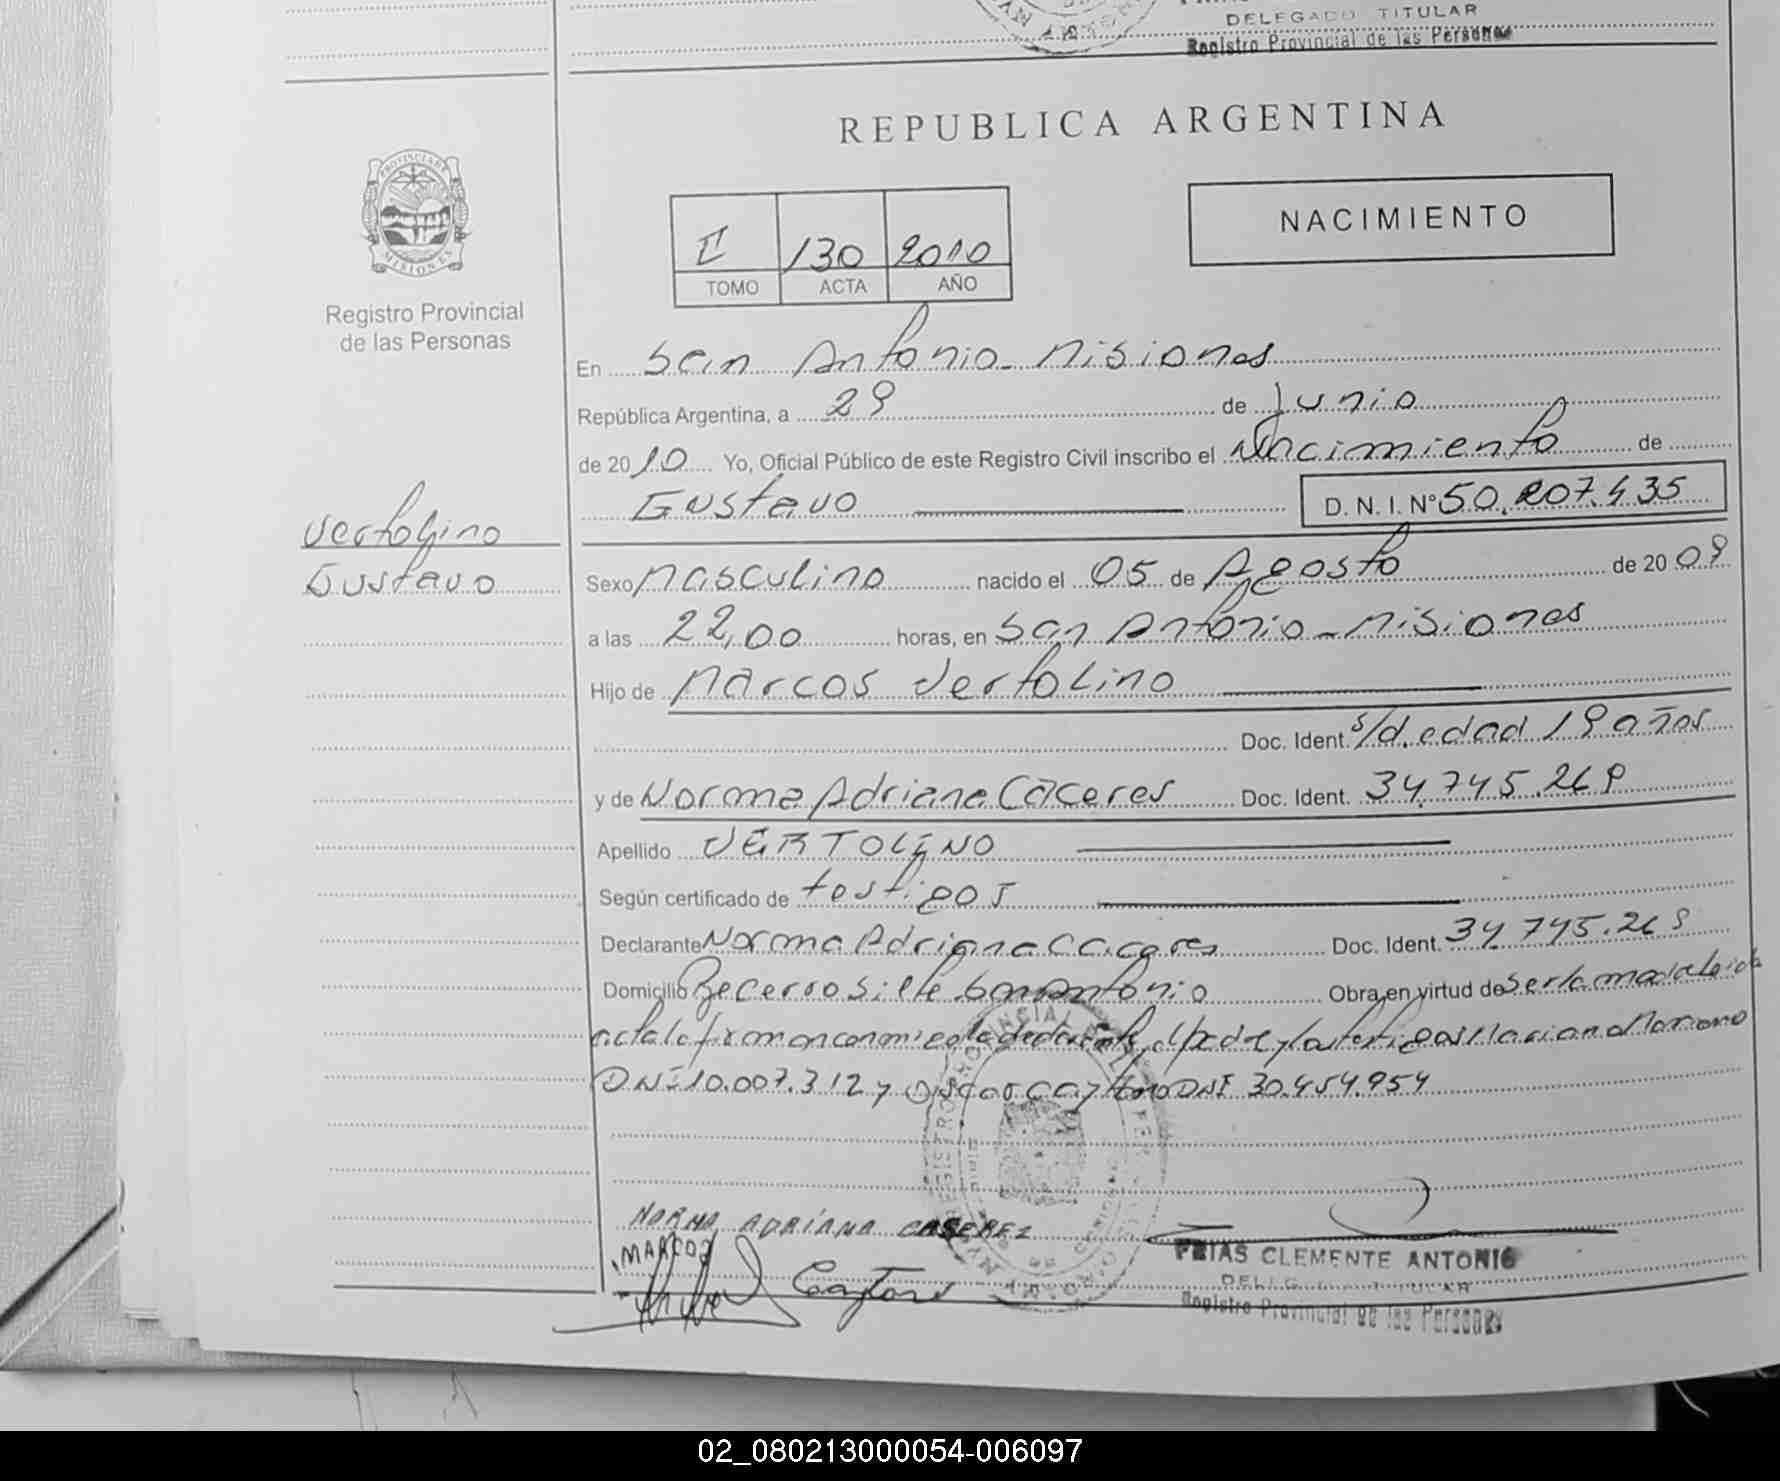 DELEGADO TITULAR
Registro Provincial de las Personas
REPUBLICA ARGENTINA
PROVINCIA DE
MISIONES
Registro Provincial
de las Personas
II 130 2010
TOMO ACTA AÑO
NACIMIENTO
En San Antonio - Misiones
República Argentina, a 29 de Junio
de 2010 Yo, Oficial Público de este Registro Civil inscribo el Nacimiento de
Gustavo D. N. I. N° 50.207.435
Vertolino
Gustavo
Sexo Masculino nacido el 05 de Agosto de 2009
a las 22,00 horas, en San Antonio - Misiones
Hijo de Marcos Vertolino
Doc. Ident. s/d. edad 19 años
y de Norma Adriana Caceres Doc. Ident. 34.745.269
Apellido VERTOLINO
Según certificado de testigos
Declarante Norma Adriana Caceres Doc. Ident. 34.745.269
Domicilio Becerro Sille San Antonio Obra en virtud de ser la madre leida
acta la firman conmigo la declarante, el padre y los testigos Mariano
DNI 10.007.312 y Oscar Caytano DNI 30.454.954
NORMA ADRIANA CASEREZ
MARCOS
FEIAS CLEMENTE ANTONIO
DELEGADO TITULAR
Registro Provincial de las Personas
02_080213000054-006097